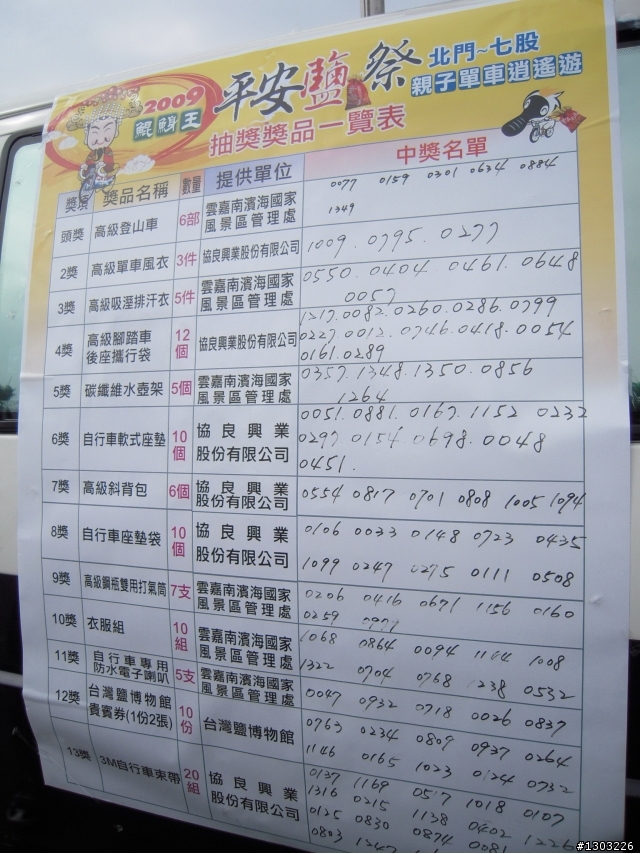 2009
鯤鯓王
平安鹽祭
北門~七股
親子單車逍遙遊
抽獎獎品一覽表
獎項 獎品名稱 數量 提供單位 中獎名單
頭獎 高級登山車 6部 雲嘉南濱海國家風景區管理處
0077 0159 0301 0634 0884
1349
2獎 高級單車風衣 3件 協良興業股份有限公司
1009. 0795. 0277
3獎 高級吸溼排汗衣 5件 雲嘉南濱海國家風景區管理處
0550. 0404. 0461. 0648
0057
4獎 高級腳踏車後座攜行袋 12個 協良興業股份有限公司
1217. 0082. 0260. 0286. 0799
0227. 0012. 0746. 0418. 0054
0161. 0289
5獎 碳纖維水壺架 5個 雲嘉南濱海國家風景區管理處
0357. 1348. 1350. 0856
1264
6獎 自行車軟式座墊 10個 協良興業股份有限公司
0051. 0881. 0167. 1152 0232
0297 0154 0698. 0048
0451.
7獎 高級斜背包 6個 協良興業股份有限公司
0554 0817 0701 0808 1005 1094
8獎 自行車座墊袋 10個 協良興業股份有限公司
0106 0033 0148 0723 0435
1099 0247 0275 0111 0508
9獎 高級鋼瓶雙用打氣筒 7支 雲嘉南濱海國家風景區管理處
0206 0416 0671 1156 0160
0259
10獎 衣服組 10組 雲嘉南濱海國家風景區管理處
1068 0864 0094 1008
1322 0704 0768 1238 0532
11獎 自行車專用防水電子喇叭 5支 雲嘉南濱海國家風景區管理處
0047 0932 0718 0026 0837
12獎 台灣鹽博物館貴賓券(1份2張) 10份 台灣鹽博物館
0763 0234 0809 0937 0264
1146 0165 1023 0124 0732
13獎 3M自行車束帶 20組 協良興業股份有限公司
0137 1169 0517 1018 0107
1316 0215 1138 0402 1226
0125 0830 0874 0081
0803
#1303226